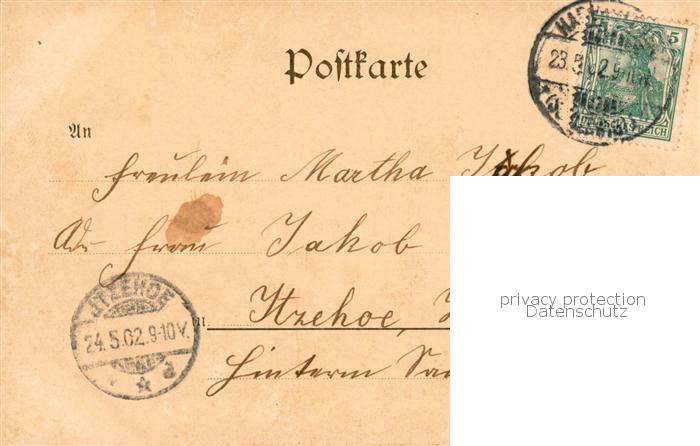 Postkarte
5
DEUTSCHES REICH
23.5.02.9-10.
An
Fräulein Martha Jakob
Adr Frau Jakob
Itzehoe,
ITZEHOE
24.5.02.9-10V.
d
in
Hinterm
privacy protection
Datenschutz